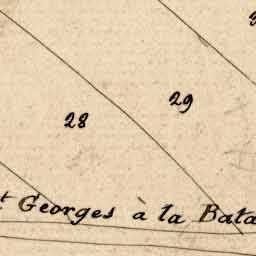 29
28
t Georges à la Bata